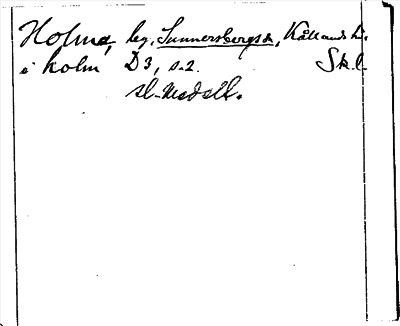 Holma, by, Sunnersbergs s., Kållands h.
i holm D3, s. 2. Sk. l.